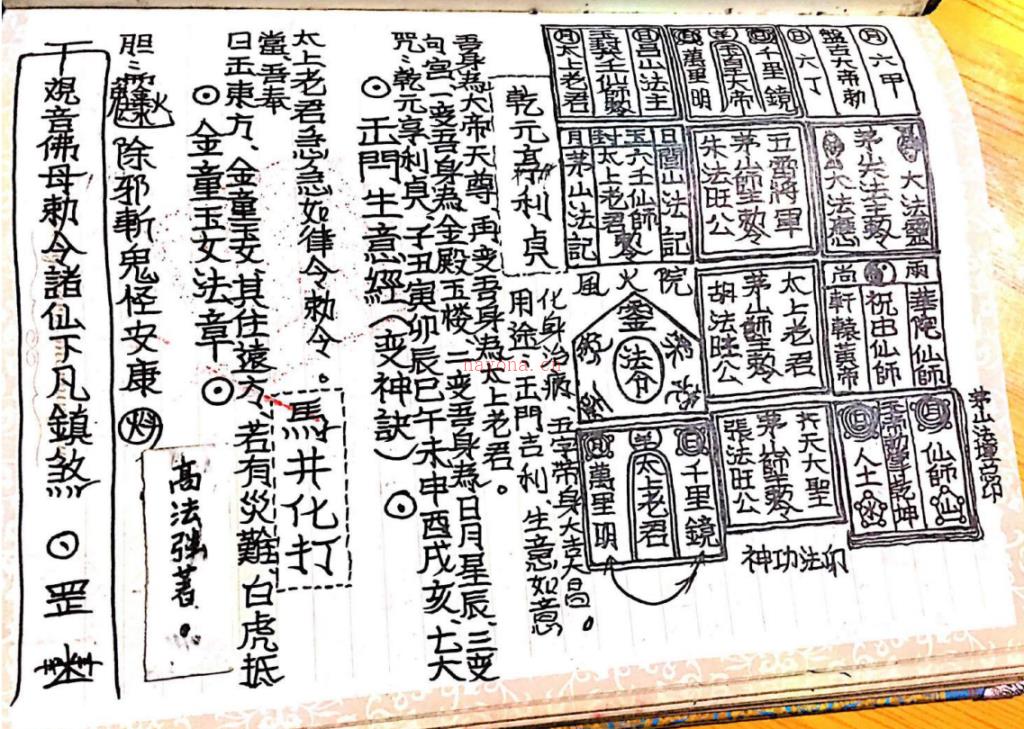 茅山法壇宮印
月 六甲
盤古大帝勅
日 六丁
千里鏡
玉皇大帝
萬里明
日 昌山法主
玉封六壬仙師勅
月 太上老君
大法靈
茅山法主勅
大法應
五雷將軍
茅山師主勅
朱法旺公
日 閭山法記
玉封六壬仙師
太上老君勅
月 茅山法記
雨 華陀仙師
祝由仙師
尚 軒轅黃帝
太上老君
茅山師主勅
胡法旺公
院
火
風
靈
法令
仙師 山
人土 火
齊天大聖
茅山師主勅
張法旺公
千里鏡
太上老君
萬里明
神功法印
乾元亨利貞
化身治病、五字帶身大吉大昌。
用途：五門吉利、生意如意
吾身為大帝天尊、再变吾身為太上老君。
句宮、一变吾身為金殿玉楼、二变吾身為日月星辰、三变
咒：乾元亨利貞、子丑寅卯辰巳午未申酉戌亥、七大
⊙ 五門生意經（变神訣）⊙
馬井化打
太上老君急急如律令勅令。
當、吾奉
日正東方、金童玉女其住遠方、若有災難、白虎抵
⊙ 金童玉女法章 ⊙
胆：
除邪斬鬼怪安康
高法強著。
觀音佛母勅令諸仙下凡鎮煞 ⊙ 罡
nayona.cn